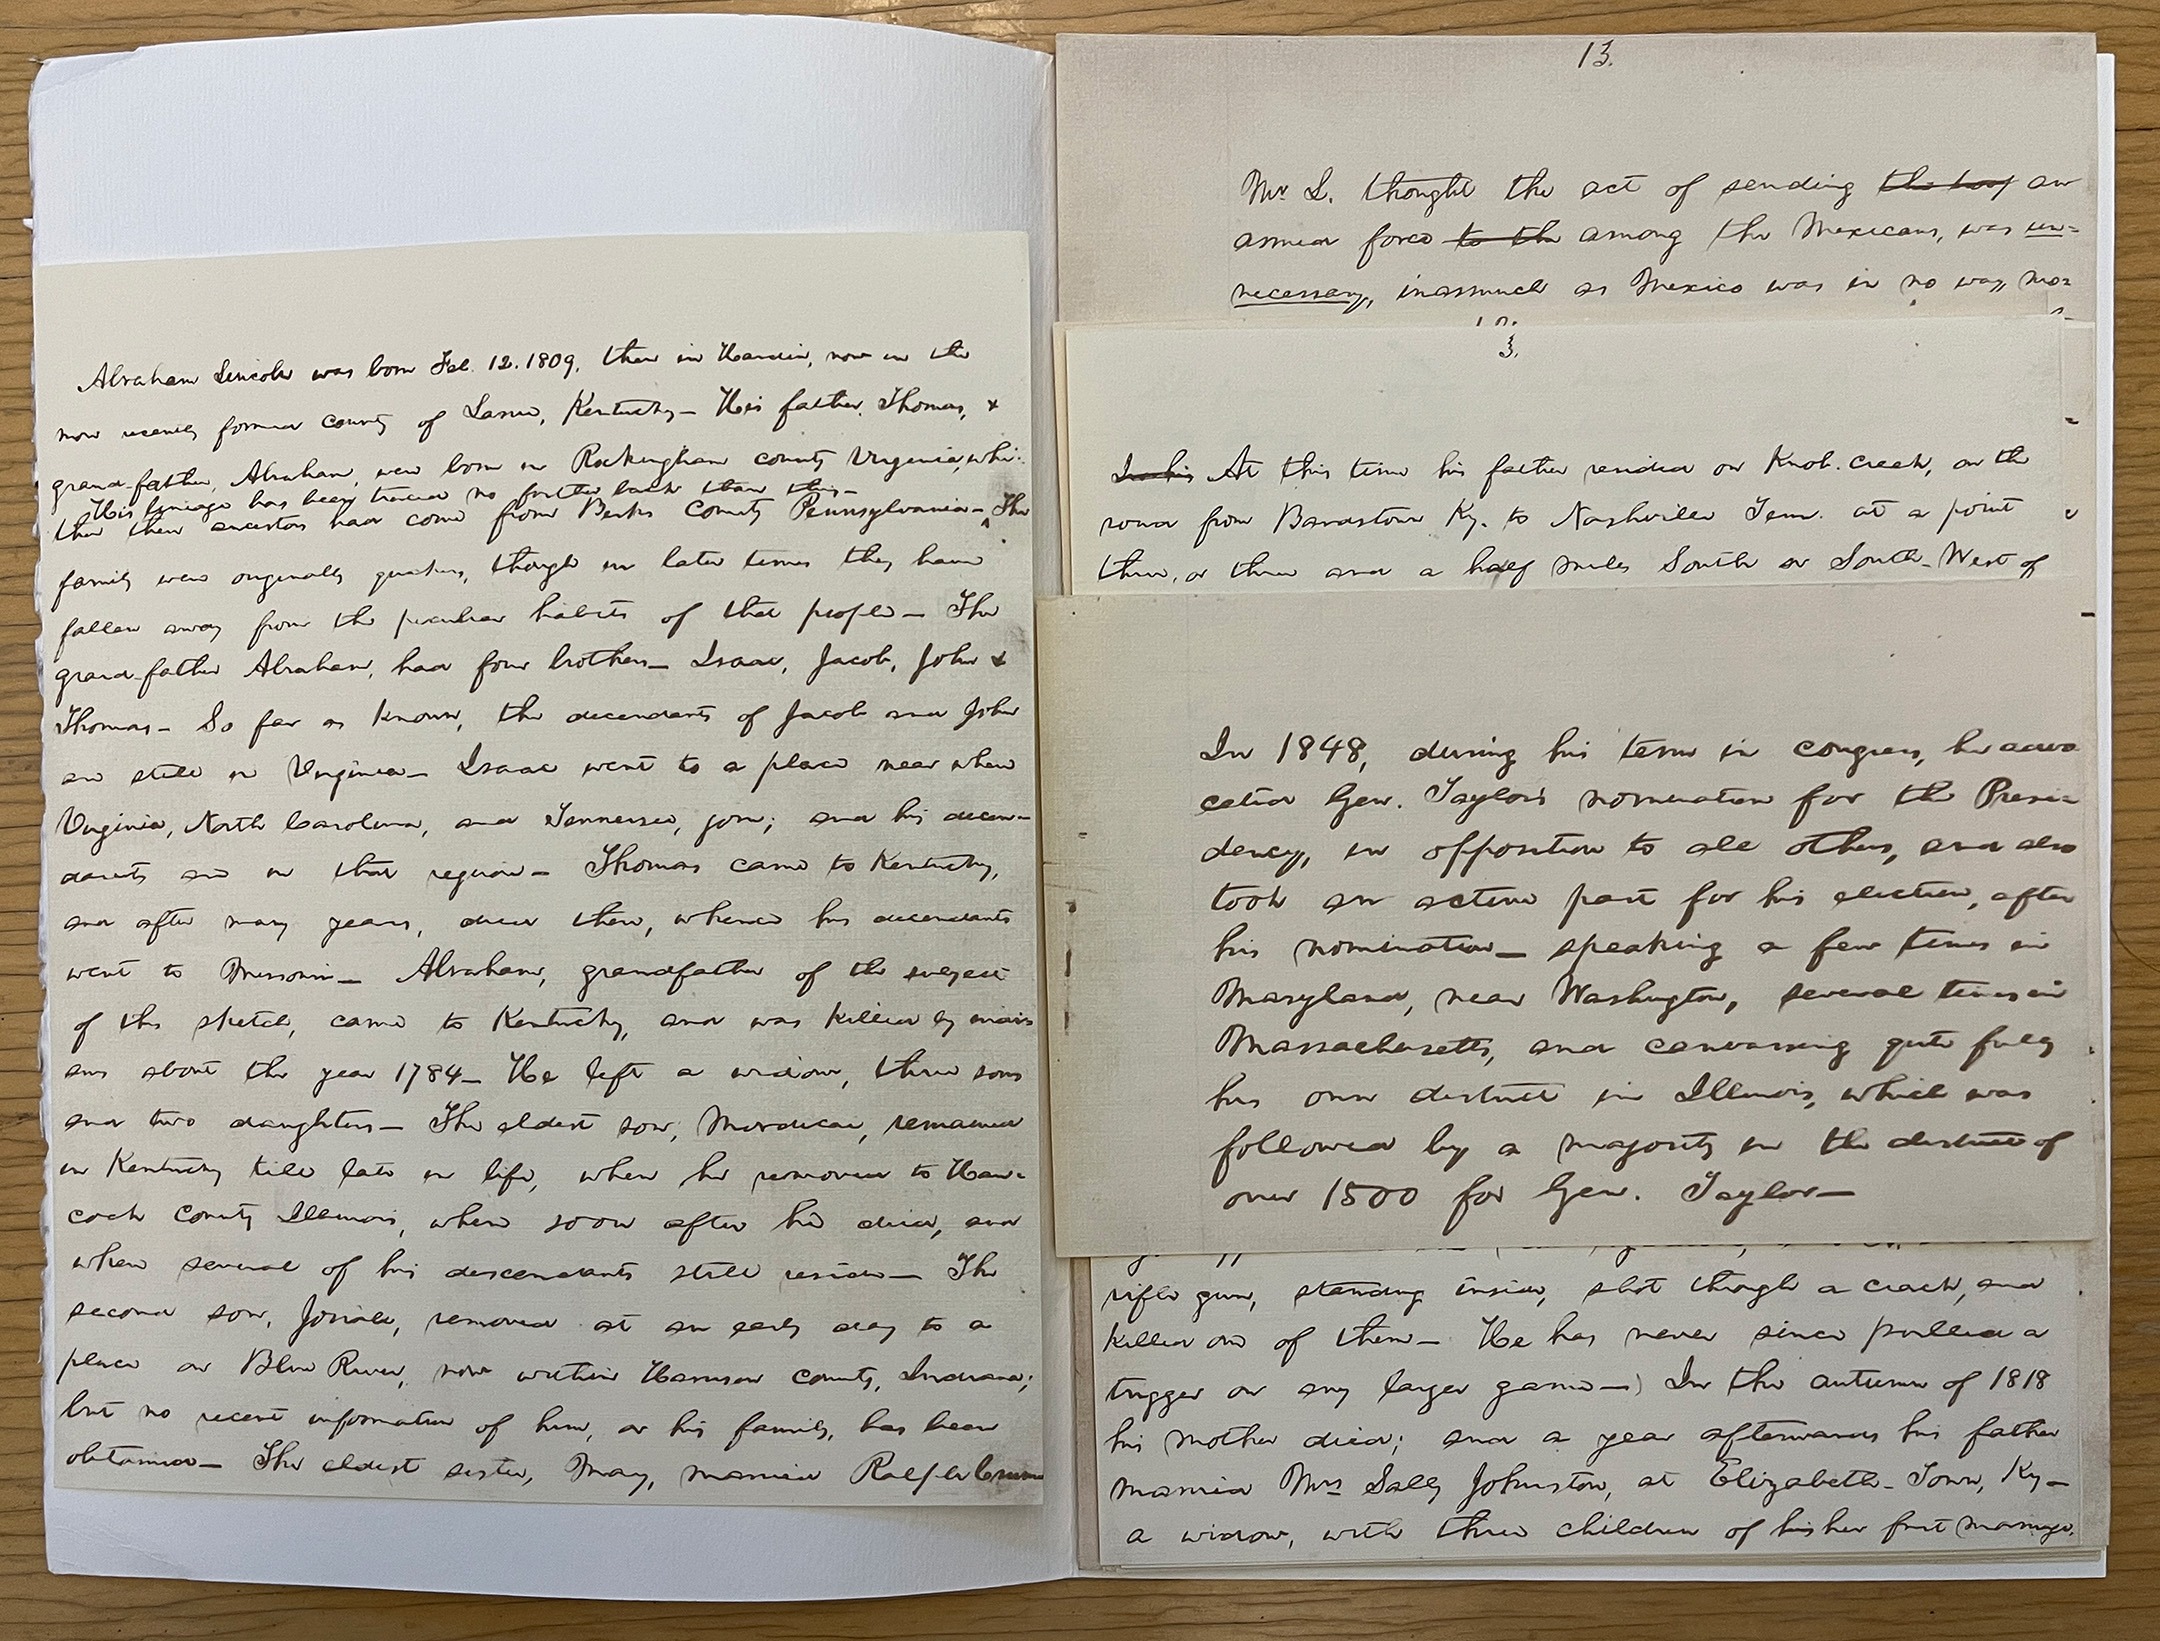 Abraham Lincoln was born Feb. 12. 1809, then in Hardin, now in the
now recently formed county of Larue, Kentucky— His father, Thomas, &
grand-father, Abraham, were born in Rockingham county Virginia, whi-
His lineage has been traced no farther back than this—
ther their ancestors had come from Berks County Pennsylvania— The
family were originally quakers, though in later times they have
fallen away from the peculiar habits of that people— The
grand-father Abraham, had four brothers— Isaac, Jacob, John &
Thomas— So far as known, the decendants of Jacob and John
are still in Virginia— Isaac went to a place near where
Virginia, North Carolina, and Tennessee, join; and his decen-
dants are in that region— Thomas came to Kentucky,
and after many years, died there, whence his decendants
went to Missouri— Abraham, grandfather of the subject
of this sketch, came to Kentucky, and was killed by indi-
ans about the year 1784— He left a widow, three sons
and two daughters— The eldest son, Mordecai, remained
in Kentucky till late in life, when he removed to Han-
cock county Illinois, where soon after he died, and
where several of his descendants still reside— The
second son, Josiah, removed at an early day to a
place on Blue River, now within Harrison county, Indiana;
but no recent information of him, or his family, has been
obtained— The eldest sister, Mary, married Ralph Crume
13.
Mr. L. thought the act of sending an
armed force to the among the Mexicans, was un-
necessary, inasmuch as Mexico was in no way mo-
3.
In his At this time his father resided on Knob-creek, on the
road from Bardstown Ky. to Nashville Tenn. at a point
three, or three and a half miles South or South-West of
In 1848, during his term in congress, he advo-
cated Gen. Taylor's nomination for the Presi-
dency, in opposition to all others, and also
took an active part for his election, after
his nomination— speaking a few times in
Maryland, near Washington, several times in
Massachusetts, and canvassing quite fully
his own district in Illinois, which was
followed by a majority in the district of
over 1500 for Gen. Taylor—
rifle gun, standing inside, shot through a crack, and
killed one of them— He has never since pulled a
trigger on any larger game—) In the autumn of 1818
his mother died; and a year afterwards his father
married Mrs. Sally Johnston, at Elizabeth-Town, Ky—
a widow, with three children of her first marriage.